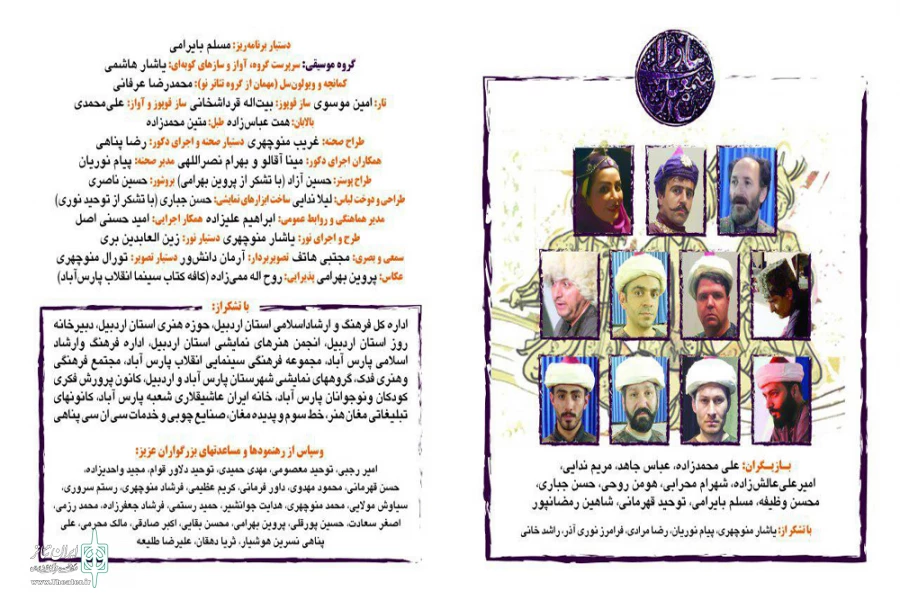 دستیار برنامه‌ریز: مسلم بایرامی
گروه موسیقی: سرپرست گروه، آواز و سازهای کوبه‌ای: یاشار هاشمی
کمانچه و ویولون‌سل (مهمان از گروه تئاتر نو): محمدرضا عرفانی
تار: امین موسوی ساز قوپوز: بیت‌اله قرداشخانی ساز قوپوز و آواز: علی‌محمدی
بالابان: همت عباس‌زاده طبل: متین محمدزاده
طراح صحنه: غریب منوچهری دستیار صحنه و اجرای دکور: رضا پناهی
همکاران اجرای دکور: مینا آقالو و بهرام نصراللهی مدیر صحنه: پیام نوریان
طراح پوستر: حسین آزاد (با تشکر از پروین بهرامی) بروشور: حسین ناصری
طراحی و دوخت لباس: لیلا ندایی ساخت ابزارهای نمایشی: حسن جباری (با تشکر از توحید نوری)
مدیر هماهنگی و روابط عمومی: ابراهیم علیزاده همکار اجرایی: امید حسنی اصل
طرح و اجرای نور: یاشار منوچهری دستیار نور: زین العابدین بری
سمعی و بصری: مجتبی هاتف تصویربردار: آرمان دانش‌ور دستیار تصویر: تورال منوچهری
عکاس: پروین بهرامی پذیرایی: روح اله ممی‌زاده (کافه کتاب سینما انقلاب پارس‌آباد)
با تشکر از:
اداره کل فرهنگ و ارشاداسلامی استان اردبیل، حوزه هنری استان اردبیل، دبیرخانه
روز استان اردبیل، انجمن هنرهای نمایشی استان اردبیل، اداره فرهنگ وارشاد
اسلامی پارس آباد، مجموعه فرهنگی سینمایی انقلاب پارس آباد، مجتمع فرهنگی
وهنری فدک، گروههای نمایشی شهرستان پارس آباد و اردبیل، کانون پرورش فکری
کودکان ونوجوانان پارس آباد، خانه ایران عاشیقلاری شعبه پارس آباد، کانونهای
تبلیغاتی مغان‌هنر، خط سوم و پدیده مغان، صنایع چوبی و خدمات سی ان سی پناهی
وسپاس از رهنمودها و مساعدتهای بزرگواران عزیز:
امیر رجبی، توحید معصومی، مهدی حمیدی، توحید دلاور قوام، مجید واحدیزاده،
حسن قهرمانی، محمود مهدوی، داور فرمانی، کریم عظیمی، فرشاد منوچهری، رستم سروری،
سیاوش مولایی، محمد منوچهری، هدایت جوانشیر، حمید رستمی، فرشاد جعفرزاده، محمد رزمی،
اصغر سعادت، حسین پورقلی، پروین بهرامی، محسن بقایی، اکبر صادقی، مالک محرمی، علی
پناهی نسرین هوشیار، ثریا دهقان، علیرضا طلیعه
بازیگران: علی محمدزاده، عباس جاهد، مریم ندایی،
امیرعلی‌عالش‌زاده، شهرام محرابی، هومن روحی، حسن جباری،
محسن وظیفه، مسلم بایرامی، توحید قهرمانی، شاهین رمضانپور
با تشکر از: یاشار منوچهری، پیام نوریان، رضا مرادی، فرامرز نوری آذر، راشد خانی
ایران تئاتر
www.Theater.ir